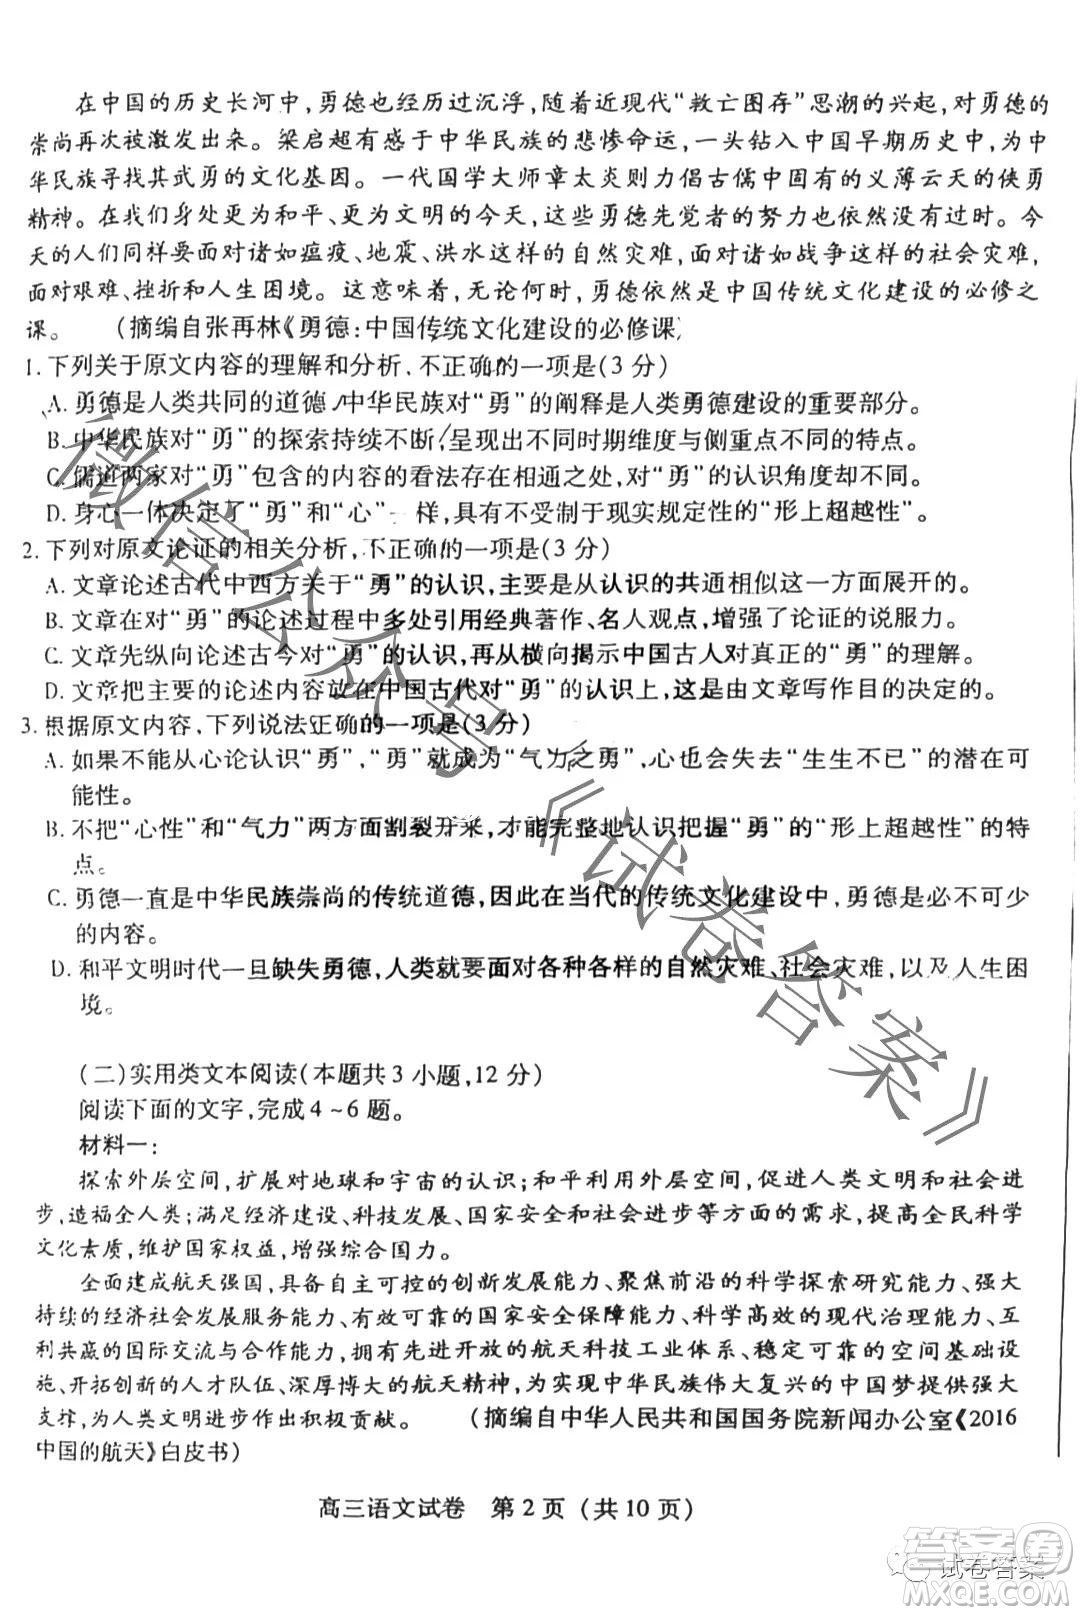 在中国的历史长河中,勇德也经历过沉浮,随着近现代“救亡图存”思潮的兴起,对勇德的
崇尚再次被激发出来。梁启超有感于中华民族的悲惨命运,一头钻入中国早期历史中,为中
华民族寻找其武勇的文化基因。一代国学大师章太炎则力倡古儒中固有的义薄云天的侠勇
精神。在我们身处更为和平、更为文明的今天,这些勇德先觉者的努力也依然没有过时。今
天的人们同样要面对诸如瘟疫、地震、洪水这样的自然灾难,面对诸如战争这样的社会灾难,
面对艰难、挫折和人生困境。这意味着,无论何时,勇德依然是中国传统文化建设的必修之
课。 (摘编自张再林《勇德:中国传统文化建设的必修课)
1. 下列关于原文内容的理解和分析,不正确的一项是(3 分)
A. 勇德是人类共同的道德,中华民族对“勇”的阐释是人类勇德建设的重要部分。
B. 中华民族对“勇”的探索持续不断,呈现出不同时期维度与侧重点不同的特点。
C. 儒道两家对“勇”包含的内容的看法存在相通之处,对“勇”的认识角度却不同。
D. 身心一体决定了“勇”和“心”一样,具有不受制于现实规定性的“形上超越性”。
2. 下列对原文论证的相关分析,不正确的一项是(3 分)
A. 文章论述古代中西方关于“勇”的认识,主要是从认识的共通相似这一方面展开的。
B. 文章在对“勇”的论述过程中多处引用经典著作、名人观点,增强了论证的说服力。
C. 文章先纵向论述古今对“勇”的认识,再从横向揭示中国古人对真正的“勇”的理解。
D. 文章把主要的论述内容放在中国古代对“勇”的认识上,这是由文章写作目的决定的。
3. 根据原文内容,下列说法正确的一项是(3 分)
A. 如果不能从心论认识“勇”,“勇”就成为“气力之勇”,人心也会失去“生生不已”的潜在可
能性。
B. 不把“心性”和“气力”两方面割裂开来,才能完整地认识把握“勇”的“形上超越性”的特
点。
C. 勇德一直是中华民族崇尚的传统道德,因此在当代的传统文化建设中,勇德是必不可少
的内容。
D. 和平文明时代一旦缺失勇德,人类就要面对各种各样的自然灾难、社会灾难,以及人生困
境。
(二)实用类文本阅读(本题共 3 小题,12 分)
阅读下面的文字,完成 4～6 题。
材料一:
探索外层空间,扩展对地球和宇宙的认识;和平利用外层空间,促进人类文明和社会进
步,造福全人类;满足经济建设、科技发展、国家安全和社会进步等方面的需求,提高全民科学
文化素质,维护国家权益,增强综合国力。
全面建成航天强国,具备自主可控的创新发展能力、聚焦前沿的科学探索研究能力、强大
持续的经济社会发展服务能力、有效可靠的国家安全保障能力、科学高效的现代治理能力、互
利共赢的国际交流与合作能力,拥有先进开放的航天科技工业体系、稳定可靠的空间基础设
施、开拓创新的人才队伍、深厚博大的航天精神,为实现中华民族伟大复兴的中国梦提供强大
支撑,为人类文明进步作出积极贡献。 (摘编自中华人民共和国国务院新闻办公室《2016
中国的航天》白皮书)
高三语文试卷 第 2 页 (共 10 页)
微信公众号《试卷答案》
试卷答案
答案圈
MXQE.COM